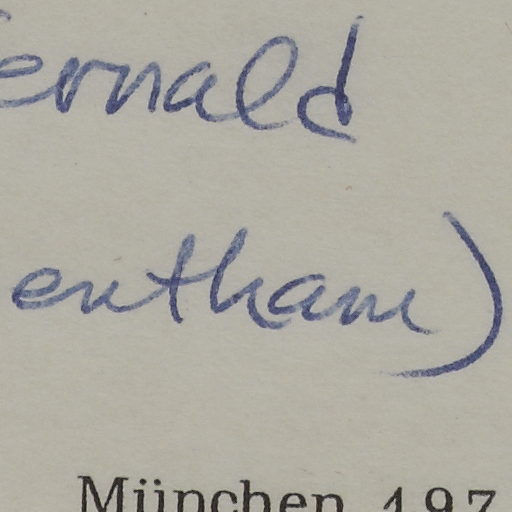 ernald
entham)
München 197